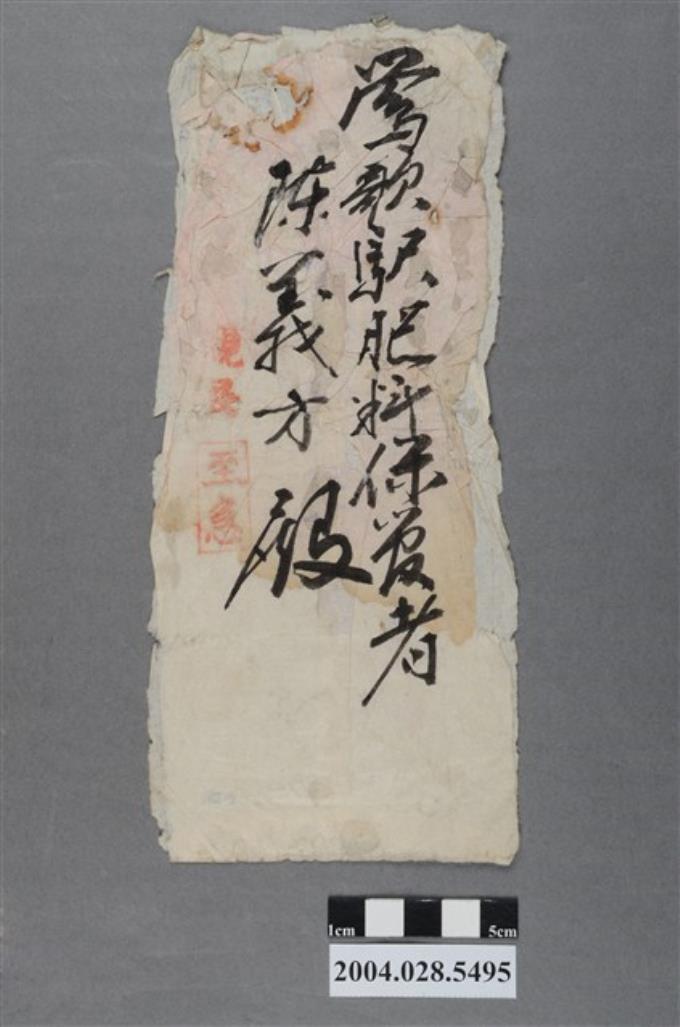 鶯歌駅肥料保管者
陳義方 殿
見
至急
1cm 5cm
2004.028.5495